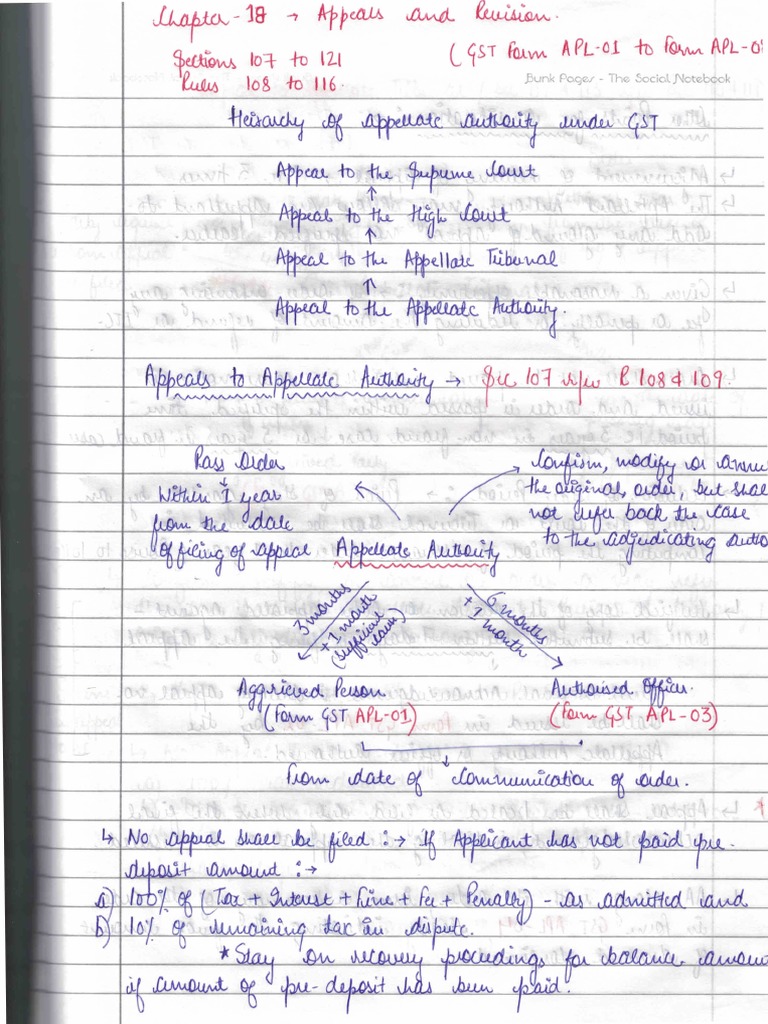 Chapter-18 → Appeals and Revision.
Sections 107 to 121
(GST Form APL-01 to Form APL-0
Rules 108 to 116.
Bunk Pages - The Social Notebook
Heirarchy of appellate authority under GST
Appeal to the Supreme Court
↑
Appeal to the High Court
↑
Appeal to the Appellate Tribunal
↑
Appeal to the Appellate Authority.
Appeals to Appellate Authority → Sec 107 r/w R 108 & 109.
Pass Order
↓
Within 1 year
from the date
of filing of appeal
Confirm, modify or annu
the original order, but shall
not refer back the case
to the adjudicating autho
Appellate Authority
3 months
+1 month
(sufficient
cause)
6 months
+1 month
Aggrieved Person
(Form GST APL-01)
Authorised Officer.
(Form GST APL-03)
↓
From date of communication of order.
↳ No appeal shall be filed :→ If Applicant has not paid pre-
deposit amount :→
a) 100% of (Tax + Interest + Fine + Fee + Penalty) - as admitted and
b) 10% of remaining tax in dispute.
*Stay on recovery proceedings for balance amoun
if amount of pre-deposit has been paid.